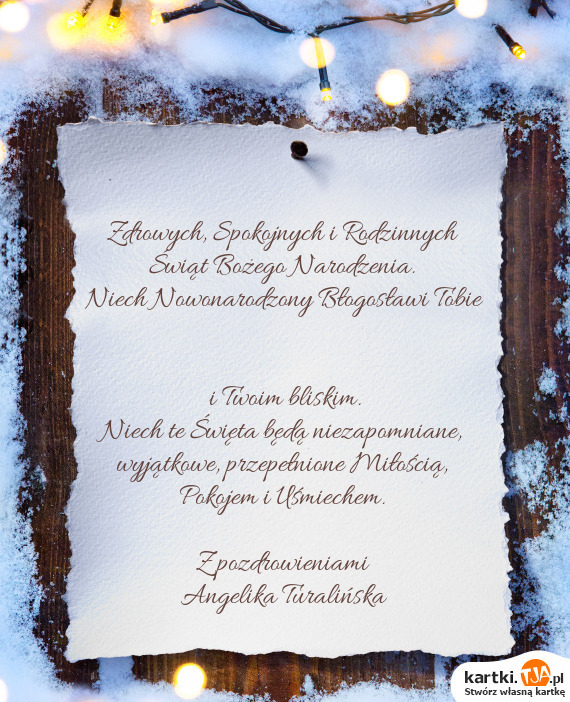 Zdrowych, Spokojnych i Rodzinnych
Świąt Bożego Narodzenia.
Niech Nowonarodzony Błogosławi Tobie
i Twoim bliskim.
Niech te Święta będą niezapomniane,
wyjątkowe, przepełnione Miłością,
Pokojem i Uśmiechem.
Z pozdrowieniami
Angelika Turalińska
kartki.TJA.pl
Stwórz własną kartkę